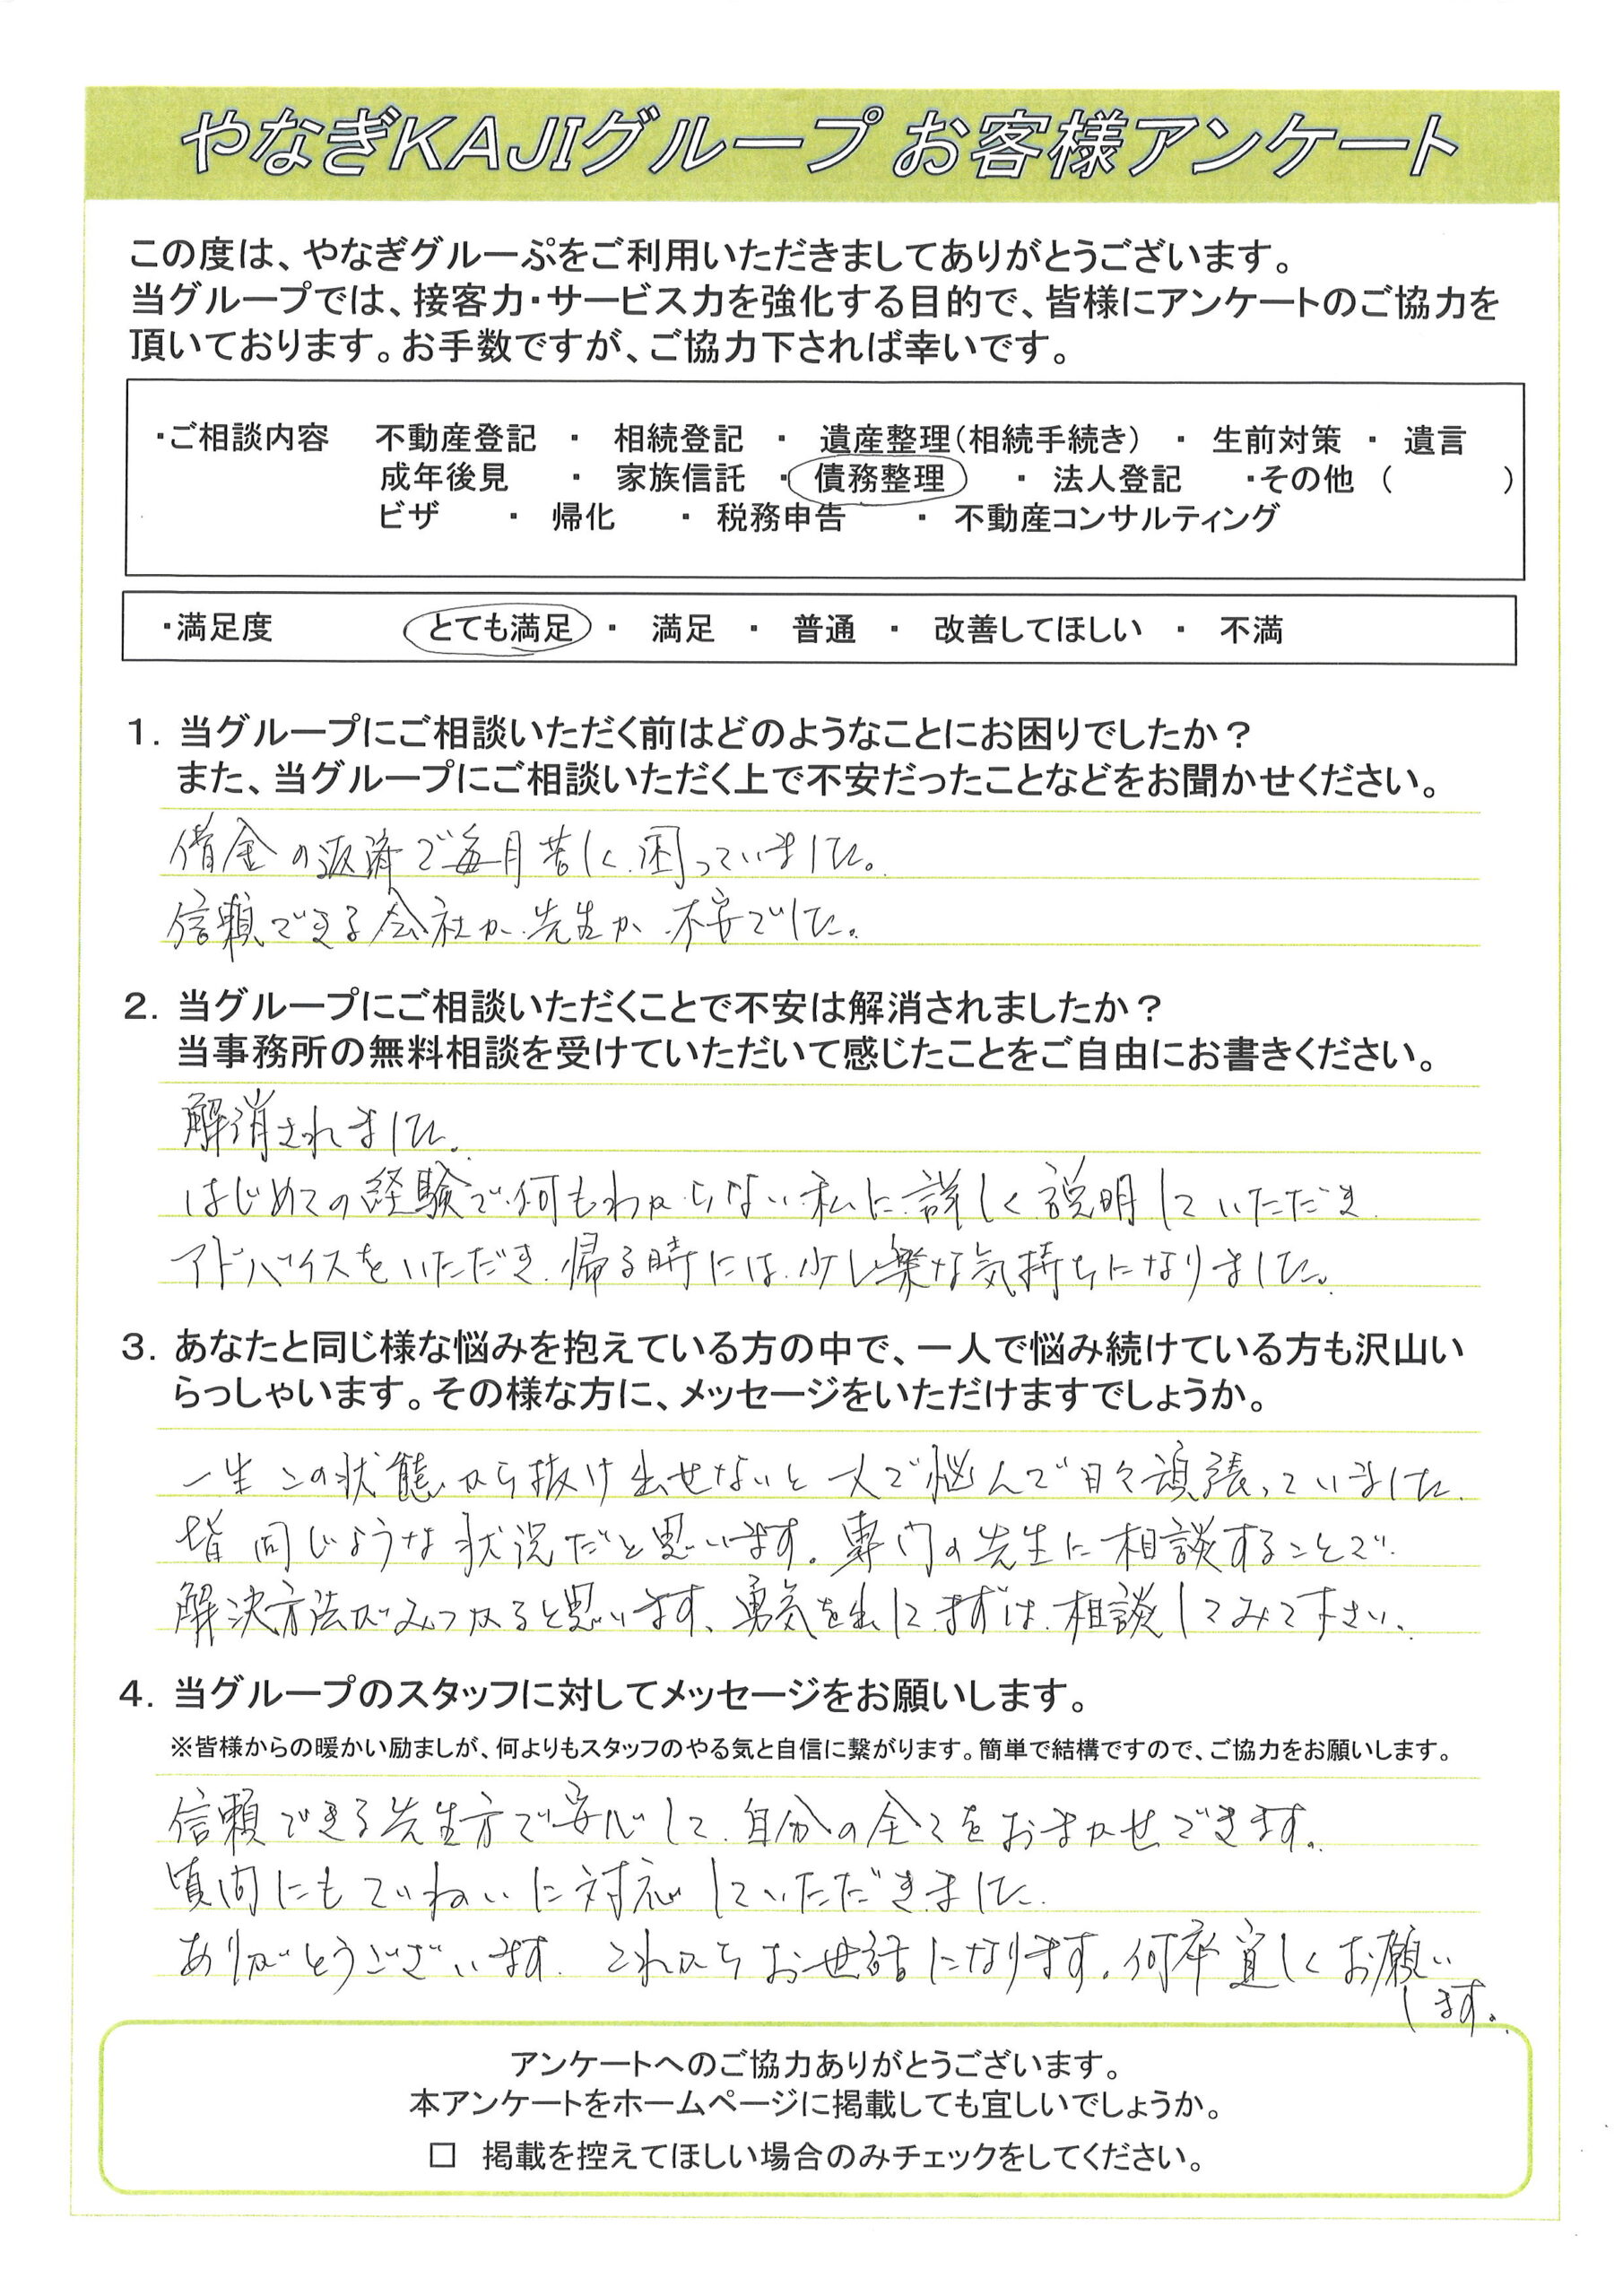 やなぎKAJIグループ お客様アンケート
この度は、やなぎグルーぷをご利用いただきましてありがとうございます。
当グループでは、接客力・サービス力を強化する目的で、皆様にアンケートのご協力を
頂いております。お手数ですが、ご協力下されば幸いです。
・ご相談内容 不動産登記 ・ 相続登記 ・ 遺産整理(相続手続き) ・ 生前対策 ・ 遺言
成年後見 ・ 家族信託 ・ 債務整理 ・ 法人登記 ・その他 ( )
ビザ ・ 帰化 ・ 税務申告 ・ 不動産コンサルティング
・満足度 とても満足 ・ 満足 ・ 普通 ・ 改善してほしい ・ 不満
1. 当グループにご相談いただく前はどのようなことにお困りでしたか?
また、当グループにご相談いただく上で不安だったことなどをお聞かせください。
借金の返済で毎月苦しく困っていました。
信頼できる会社か、先生か、不安でした。
2. 当グループにご相談いただくことで不安は解消されましたか?
当事務所の無料相談を受けていただいて感じたことをご自由にお書きください。
解消されました。
はじめての経験で何もわからない私に詳しく説明していただき
アドバイスをいただき、帰る時には少し楽な気持ちになりました。
3. あなたと同じ様な悩みを抱えている方の中で、一人で悩み続けている方も沢山い
らっしゃいます。その様な方に、メッセージをいただけますでしょうか。
一生この状態から抜け出せないと一人で悩んで日々頑張っていました。
皆同じような状況だと思います。専門の先生に相談することで
解決方法がみつかると思います、勇気を出してまずは相談してみて下さい、
4. 当グループのスタッフに対してメッセージをお願いします。
※皆様からの暖かい励ましが、何よりもスタッフのやる気と自信に繋がります。簡単で結構ですので、ご協力をお願いします。
信頼できる先生方で安心して、自分の全てをおまかせできます。
にもていねいに対応していただきました。
ありがとうございます. これからお世話になります。何卒宜しくお願い
します。
アンケートへのご協力ありがとうございます。
本アンケートをホームページに掲載しても宜しいでしょうか。
□ 掲載を控えてほしい場合のみチェックをしてください。